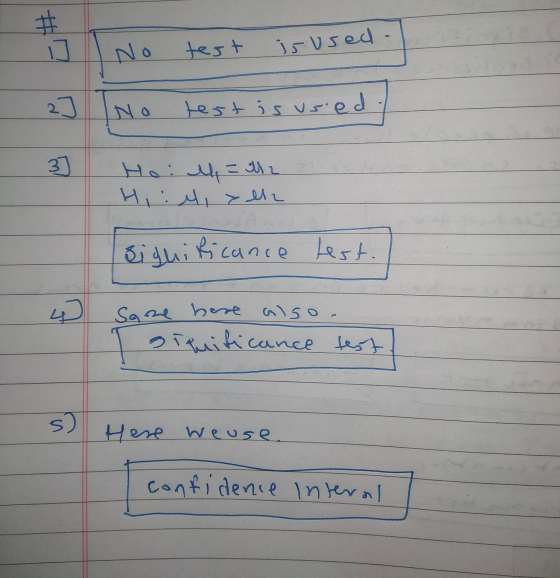 #
1] No test is used.
2] No test is used.
3] H₀ : μ₁ = μ₂
H₁ : μ₁ > μ₂
Significance test.
4] Same here also.
Significance test.
5) Here we use.
Confidence Interval